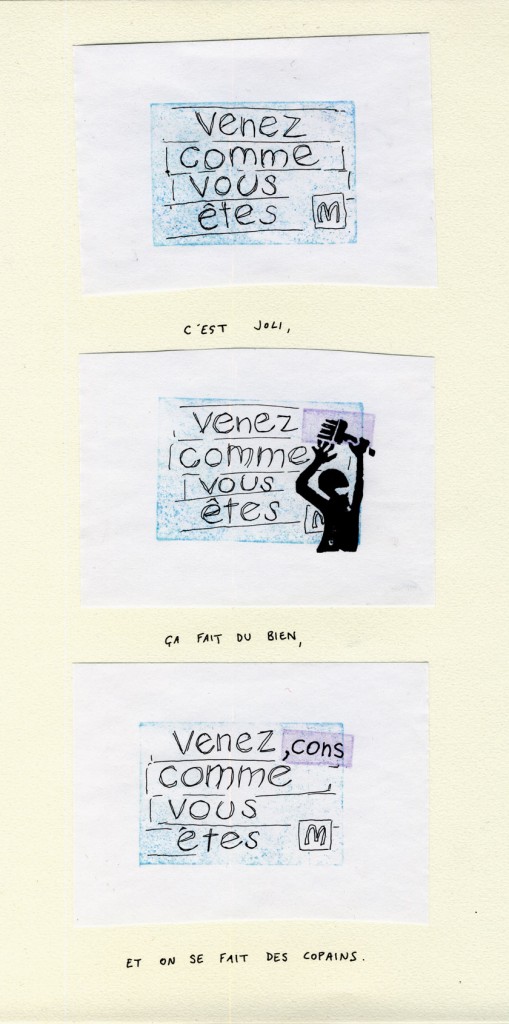 venez
comme
vous
êtes
M
C'EST JOLI,
venez
comme
vous
êtes
ÇA FAIT DU BIEN,
venez ,cons
comme
vous
êtes
M
ET ON SE FAIT DES COPAINS.